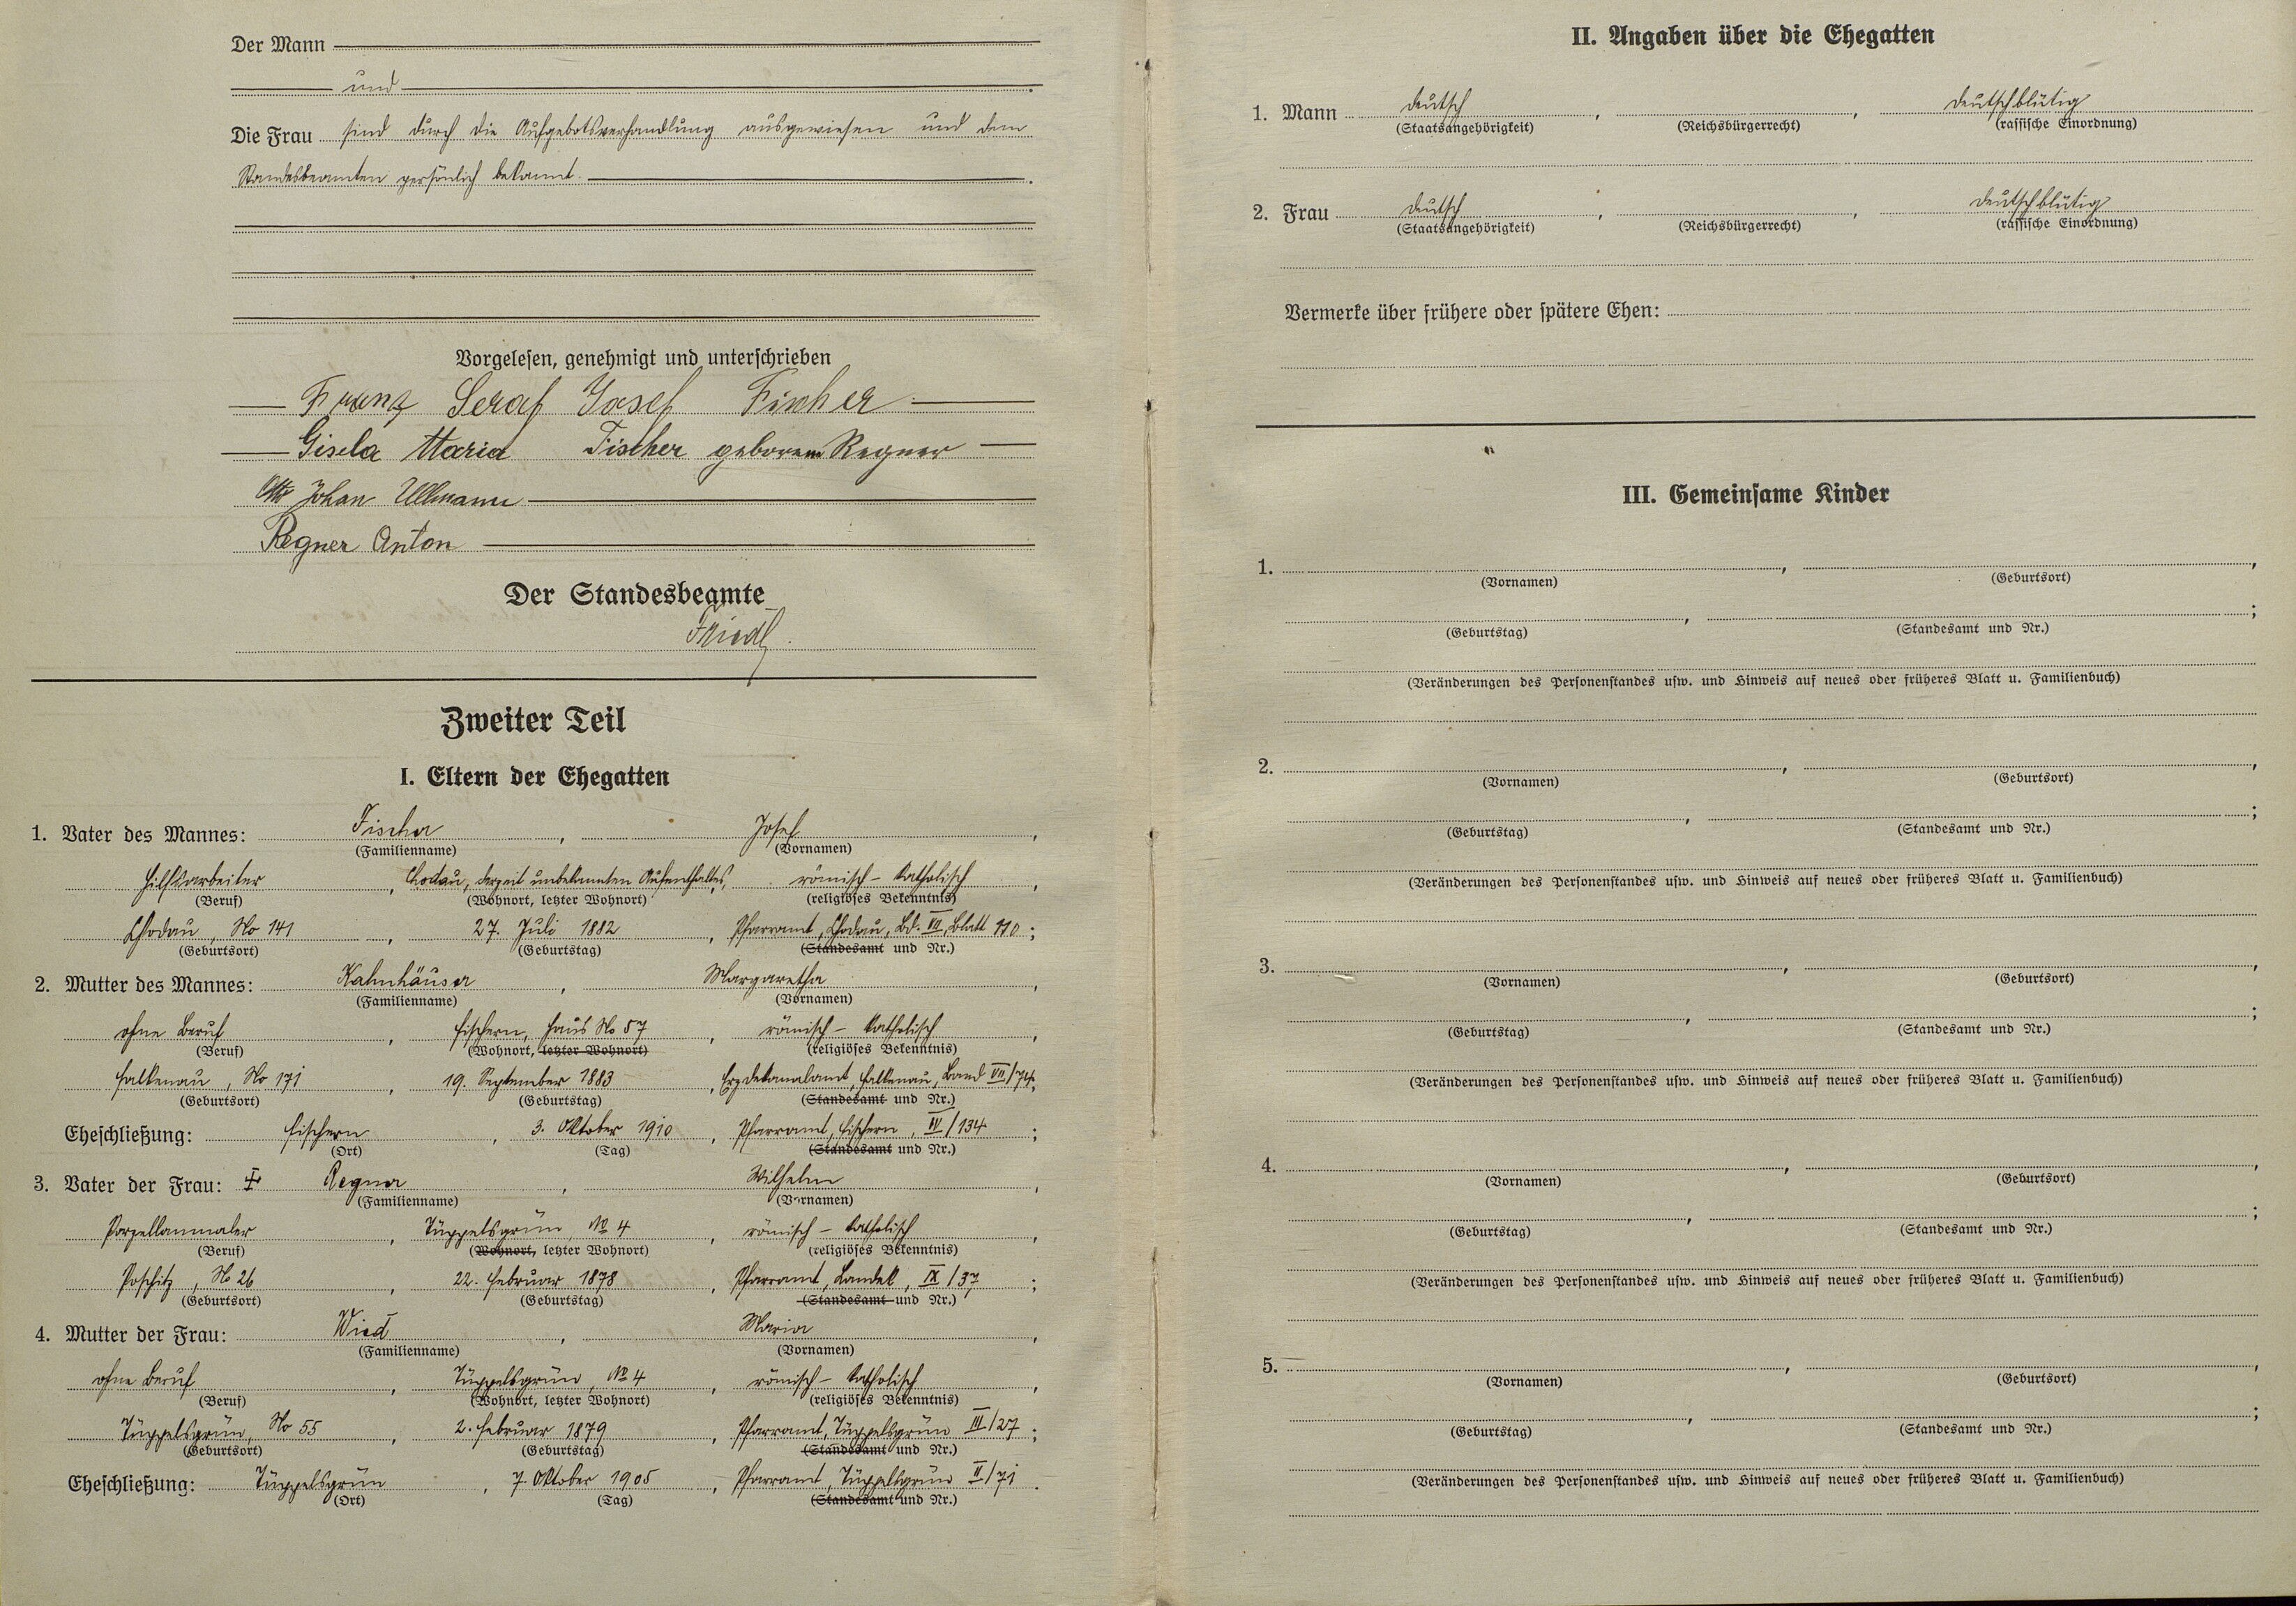 Der Mann
und
Die Frau sind durch die Aufgebotsverhandlung ausgewiesen und dem
Standesbeamten persönlich bekannt.
Vorgelesen, genehmigt und unterschrieben
Franz Seraf Josef Fischer
Gisela Maria Fischer geboren Regner
Otto Johan Ullmann
Regner Anton
Der Standesbeamte
Friedl
Zweiter Teil
I. Eltern der Ehegatten
1. Vater des Mannes: Fischer, Josef,
(Familienname) (Vornamen)
Hilfsarbeiter, Chodau, derzeit unbekannten Aufenthaltes, römisch-katholisch,
(Beruf) (Wohnort, letzter Wohnort) (religiöses Bekenntnis)
Chodau, No 141, 27. Juli 1882, Pfarramt, Chodau, Bd. VII, Blatt 110;
(Geburtsort) (Geburtstag) (Standesamt und Nr.)
2. Mutter des Mannes: Kahnhäuser, Margaretha,
(Familienname) (Vornamen)
ohne Beruf, Fischern, Haus No 57, römisch-katholisch,
(Beruf) (Wohnort, letzter Wohnort) (religiöses Bekenntnis)
Falkenau, No 171, 19. September 1883, Erzdekanalamt, Falkenau, Band VII/74;
(Geburtsort) (Geburtstag) (Standesamt und Nr.)
Eheschließung: Fischern, 3. Oktober 1910, Pfarramt, Fischern, IV/134;
(Ort) (Tag) (Standesamt und Nr.)
3. Vater der Frau: ✝ Regner, Wilhelm,
(Familienname) (Vornamen)
Porzellanmaler, Tüppelsgrün, No 4, römisch-katholisch,
(Beruf) (Wohnort, letzter Wohnort) (religiöses Bekenntnis)
Poschitz, No 26, 22. Februar 1878, Pfarramt, Landek, IX/37;
(Geburtsort) (Geburtstag) (Standesamt und Nr.)
4. Mutter der Frau: Wied, Maria,
(Familienname) (Vornamen)
ohne Beruf, Tüppelsgrün, No 4, römisch-katholisch,
(Beruf) (Wohnort, letzter Wohnort) (religiöses Bekenntnis)
Tüppelsgrün, No 55, 2. Februar 1879, Pfarramt, Tüppelsgrün III/27;
(Geburtsort) (Geburtstag) (Standesamt und Nr.)
Eheschließung: Tüppelsgrün, 7. Oktober 1905, Pfarramt, Tüppelsgrün II/71.
(Ort) (Tag) (Standesamt und Nr.)
II. Angaben über die Ehegatten
1. Mann deutsch, , deutschblütig
(Staatsangehörigkeit) (Reichsbürgerrecht) (rassische Einordnung)
2. Frau deutsch, , deutschblütig
(Staatsangehörigkeit) (Reichsbürgerrecht) (rassische Einordnung)
Vermerke über frühere oder spätere Ehen:
III. Gemeinsame Kinder
1. , ,
(Vornamen) (Geburtsort)
, ;
(Geburtstag) (Standesamt und Nr.)
(Veränderungen des Personenstandes usw. und Hinweis auf neues oder früheres Blatt u. Familienbuch)
2. , ,
(Vornamen) (Geburtsort)
, ;
(Geburtstag) (Standesamt und Nr.)
(Veränderungen des Personenstandes usw. und Hinweis auf neues oder früheres Blatt u. Familienbuch)
3. , ,
(Vornamen) (Geburtsort)
, ;
(Geburtstag) (Standesamt und Nr.)
(Veränderungen des Personenstandes usw. und Hinweis auf neues oder früheres Blatt u. Familienbuch)
4. , ,
(Vornamen) (Geburtsort)
, ;
(Geburtstag) (Standesamt und Nr.)
(Veränderungen des Personenstandes usw. und Hinweis auf neues oder früheres Blatt u. Familienbuch)
5. , ,
(Vornamen) (Geburtsort)
, ;
(Geburtstag) (Standesamt und Nr.)
(Veränderungen des Personenstandes usw. und Hinweis auf neues oder früheres Blatt u. Familienbuch)